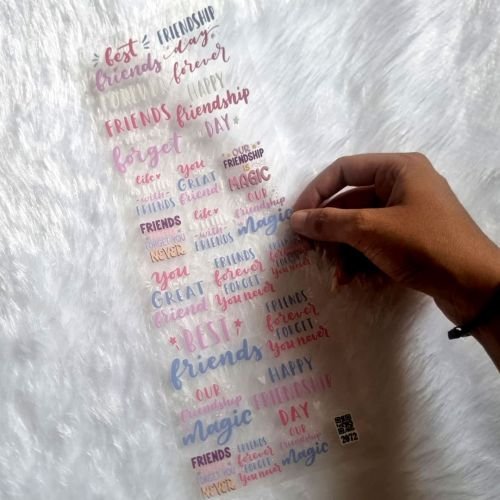 best
friends
FRIENDSHIP
day
forever
HAPPY
FRIENDS
friendship
DAY
forget
life
with
FRIENDS
You
GREAT
friend
OUR
FRIENDSHIP
IS
MAGIC
FRIENDS
FORGET YOU
NEVER
life
with
FRIENDS
OUR
friendship
Magic
You
GREAT
Friend
FRIENDS
forever
FORGET
You never
FRIENDS
forever
FORGET
You never
BEST
friends
FRIENDS
forever
FORGET
You never
OUR
friendship
Magic
HAPPY
FRIENDSHIP
DAY
FRIENDS
FORGET YOU
NEVER
FRIENDS
forever
FORGET
You never
OUR
friendship
Magic
2072